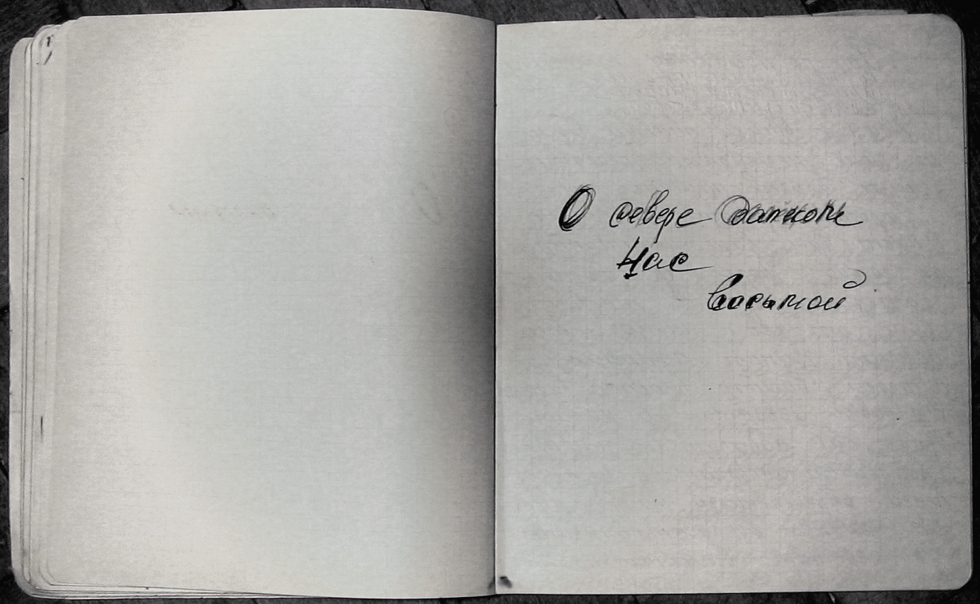 О севере далком
Час
восьмой